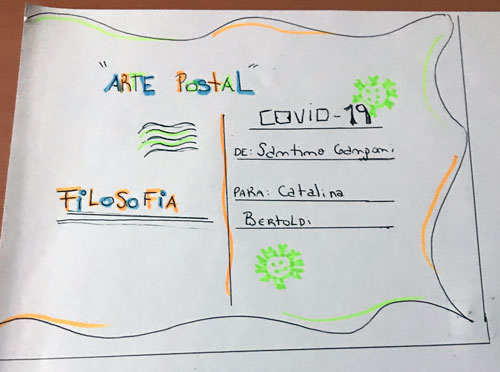 "ARTE POSTAL"
COVID-19
DE: Santino
FILOSOFIA
PARA: Catalina
BERTOLDI